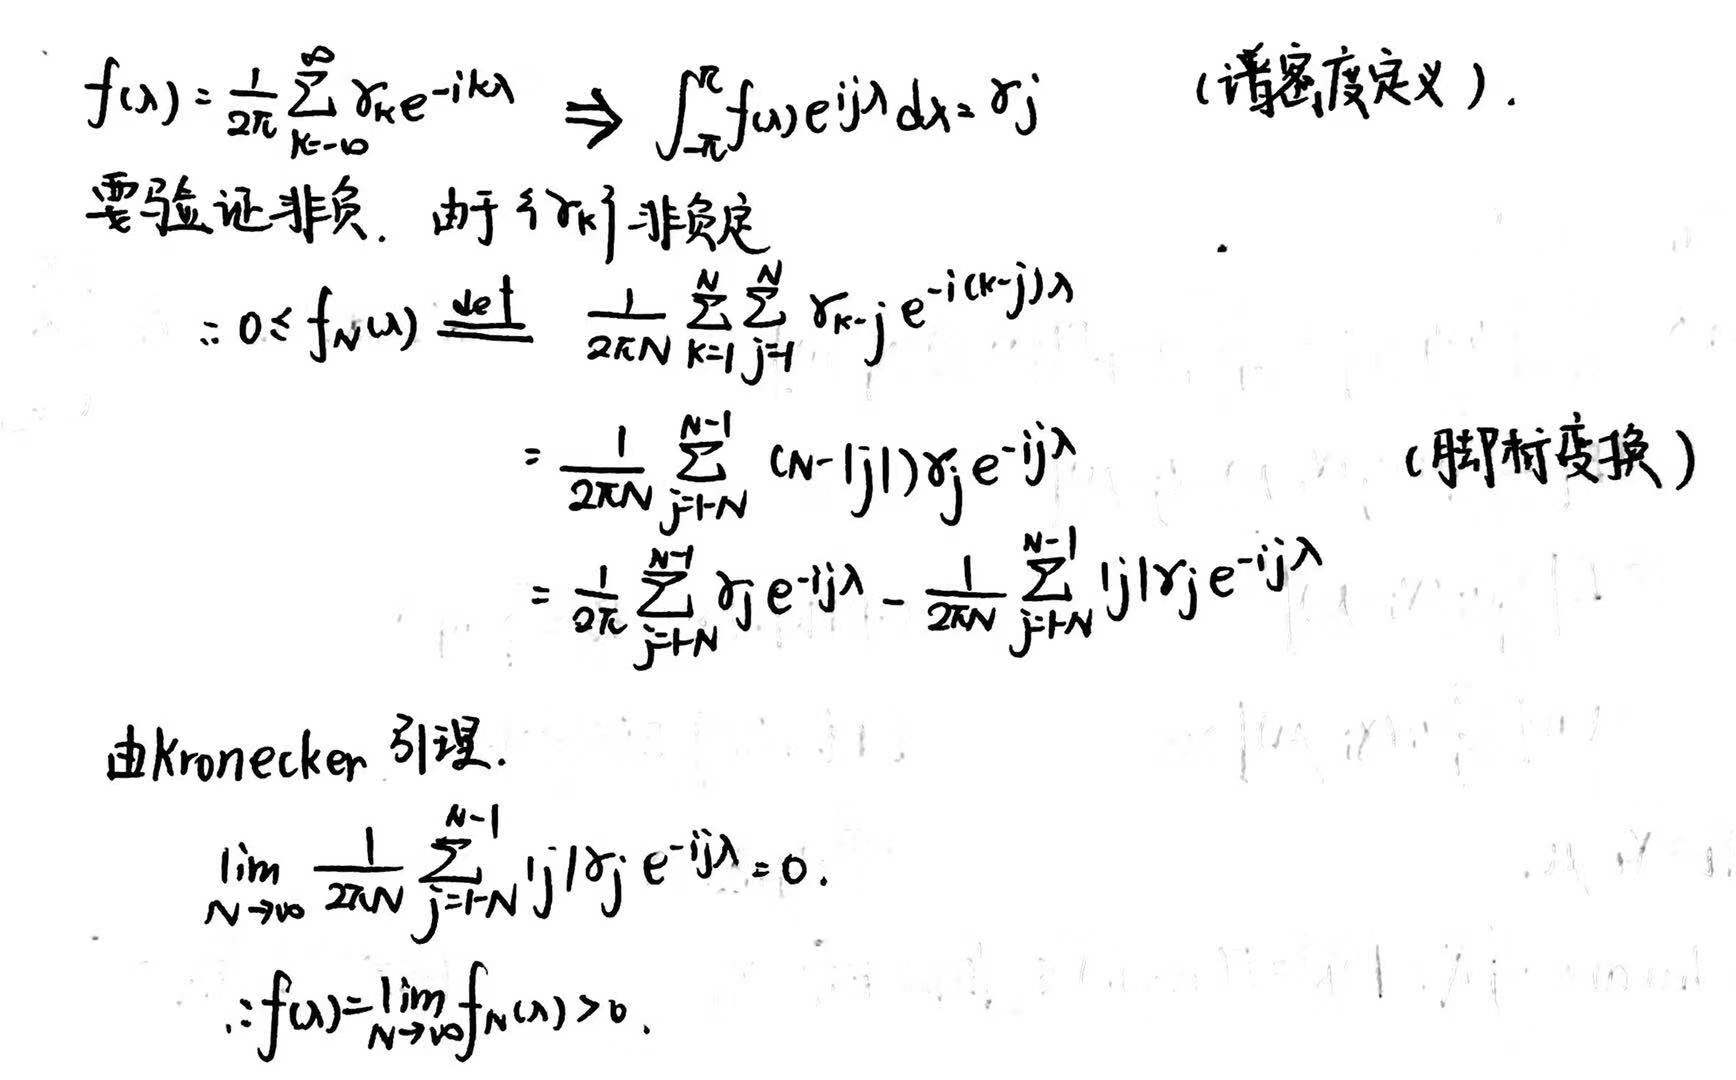 f(λ) = 1/2π ∑_{k=-∞}^{∞} γ_k e^{-ikλ} ⇒ ∫_{-π}^{π} f(λ) e^{ijλ} dλ = γ_j (谱密度定义).
要验证非负. 由于{γ_k}非负定
∴ 0 ≤ f_N(λ) \overset{def}{=} 1/2πN ∑_{k=1}^{N} ∑_{j=1}^{N} γ_{k-j} e^{-i(k-j)λ}
= 1/2πN ∑_{j=1-N}^{N-1} (N-|j|) γ_j e^{-ijλ} (脚标变换)
= 1/2π ∑_{j=1-N}^{N-1} γ_j e^{-ijλ} - 1/2πN ∑_{j=1-N}^{N-1} |j| γ_j e^{-ijλ}
由Kronecker 引理.
lim_{N→∞} 1/2πN ∑_{j=1-N}^{N-1} |j| γ_j e^{-ijλ} = 0.
∴ f(λ) = lim_{N→∞} f_N(λ) > 0.